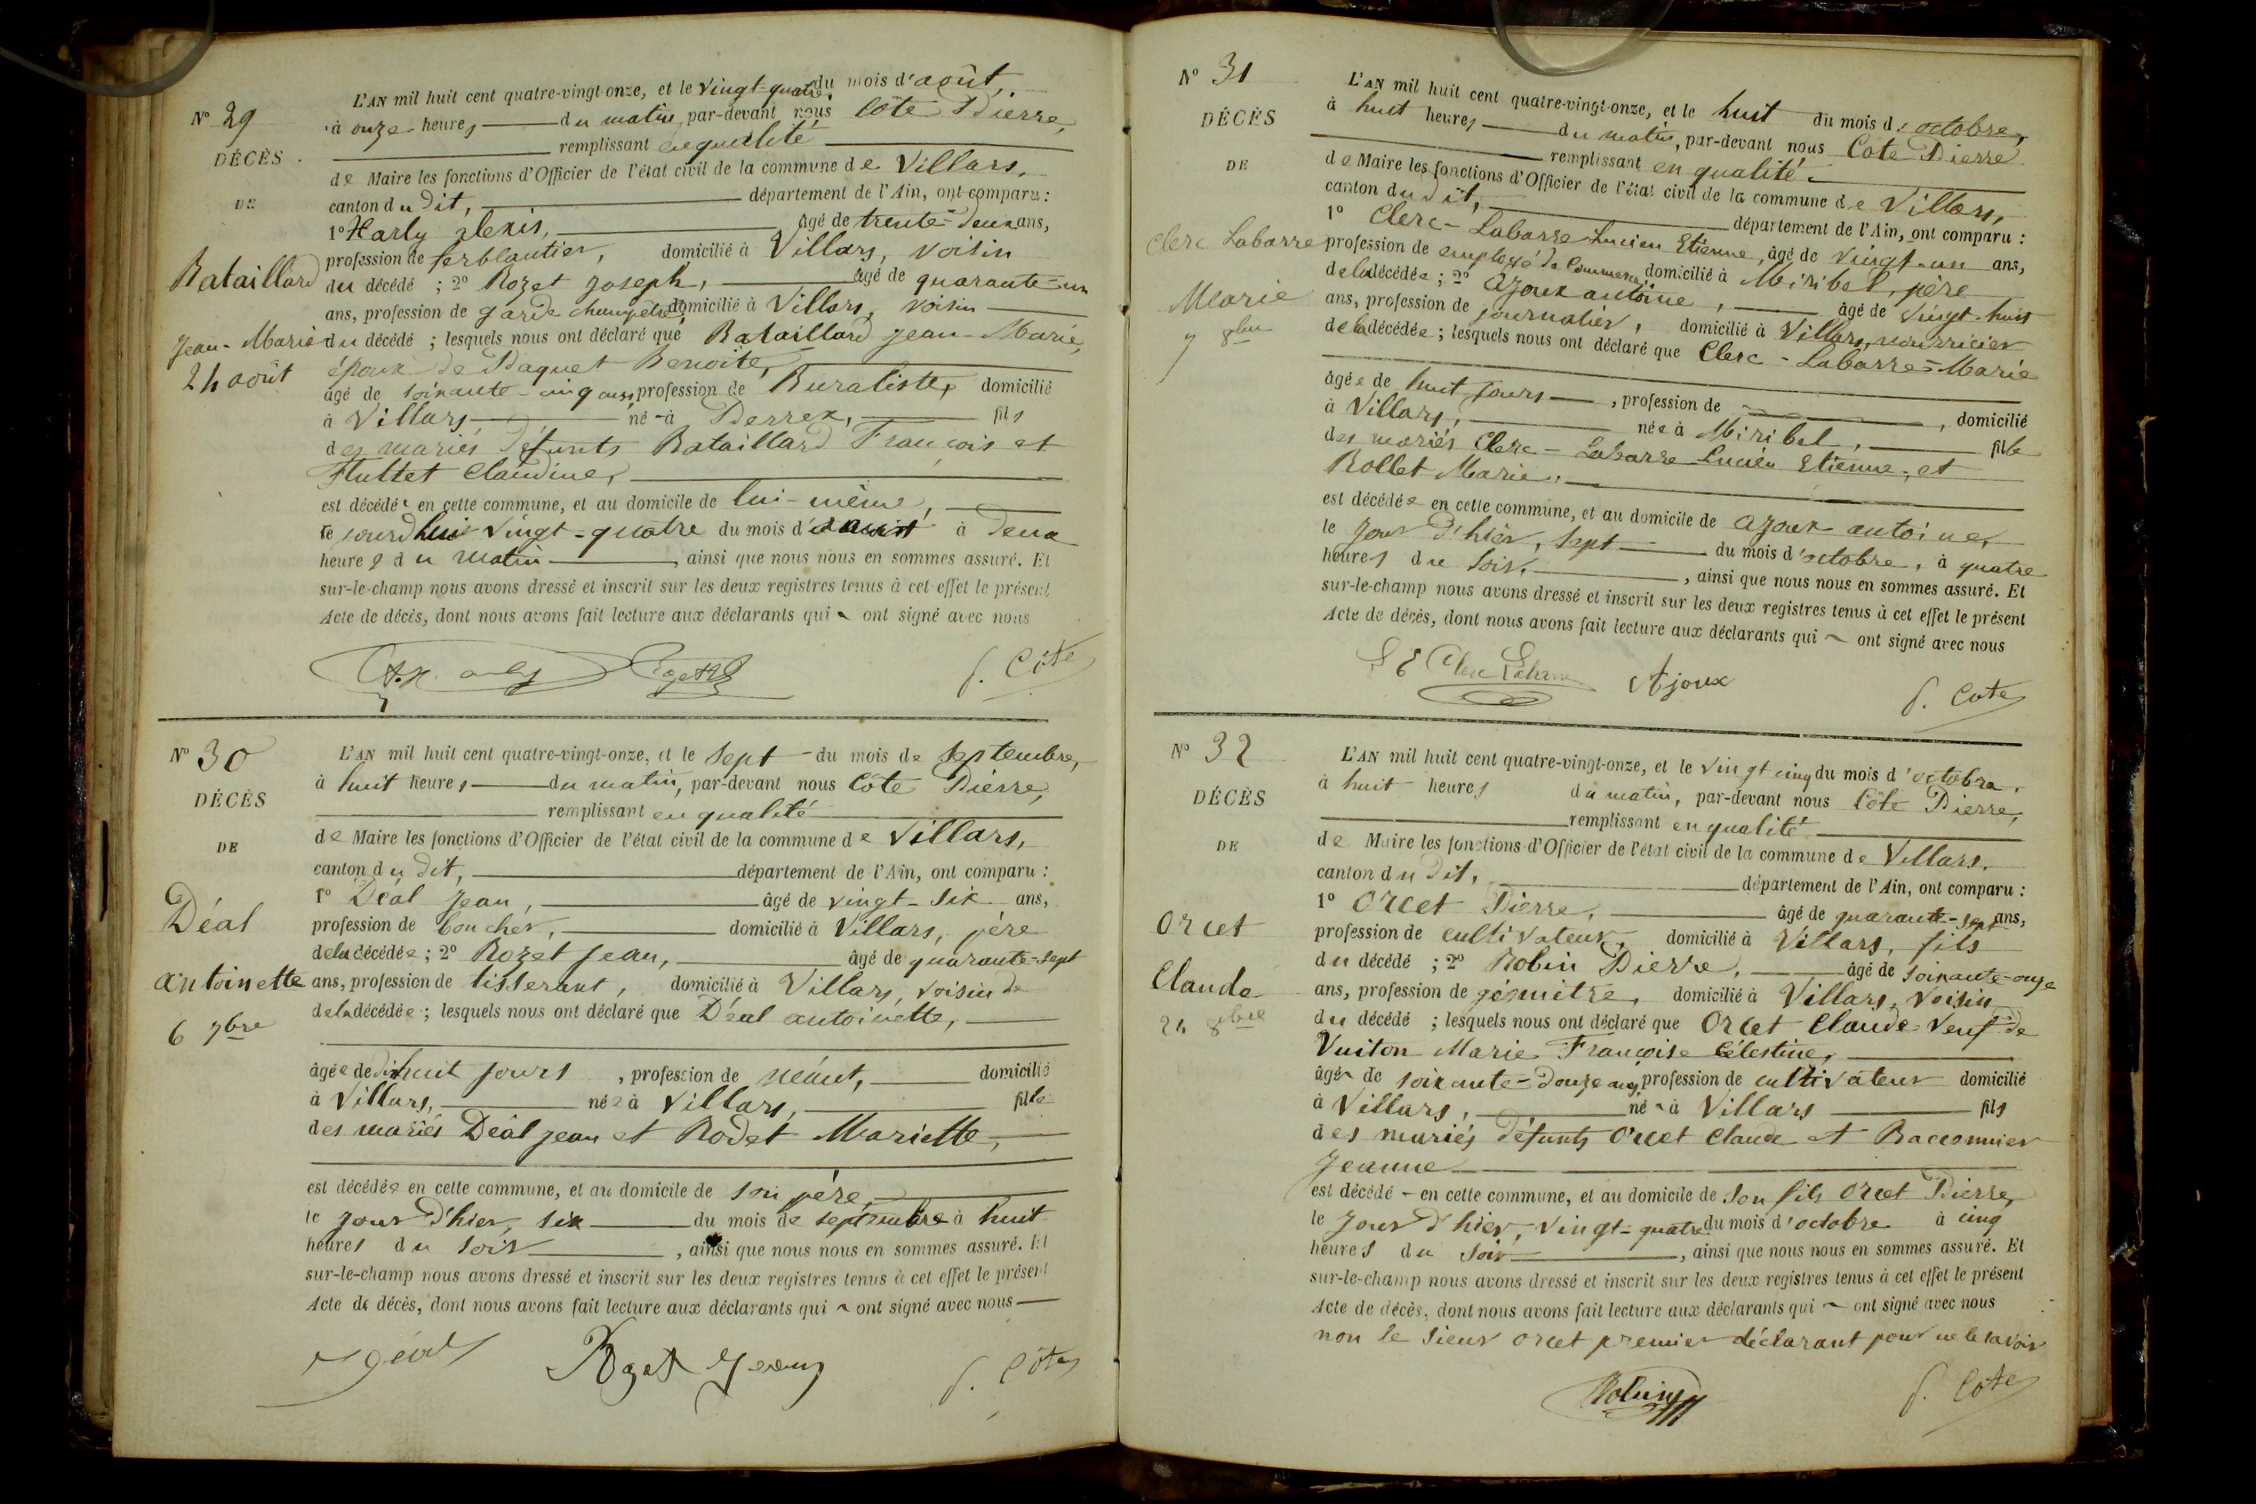 N° 29
DÉCÈS
DE
Bataillard
Jean-Marie
24 août
L'AN mil huit cent quatre-vingt-onze, et le vingt-quatre du mois d'août,
à onze heures du matin, par-devant nous Côte Pierre,
remplissant en qualité
de Maire les fonctions d'Officier de l'état civil de la commune de Villars,
canton du dit, département de l'Ain, ont comparu :
1° Harly Alexis, âgé de trente-deux ans,
profession de ferblantier, domicilié à Villars, voisin
du décédé ; 2° Rozet Joseph, âgé de quarante-un
ans, profession de garde champêtre, domicilié à Villars, voisin
du décédé ; lesquels nous ont déclaré que Bataillard Jean-Marie,
époux de Paquet Benoite,
âgé de soixante-cinq ans, profession de Buraliste, domicilié
à Villars né à Perrex, fils
des mariés défunts Bataillard François et
Fluttet Claudine,
est décédé en cette commune, et au domicile de lui-même,
le jourd'hui vingt-quatre du mois d'août à deux
heures du matin, ainsi que nous nous en sommes assuré. Et
sur-le-champ nous avons dressé et inscrit sur les deux registres tenus à cet effet le présent
Acte de décès, dont nous avons fait lecture aux déclarants qui ont signé avec nous
P. Côte
N° 30
DÉCÈS
DE
Déal
Antoinette
6 7bre
L'AN mil huit cent quatre-vingt-onze, et le sept du mois de septembre,
à huit heures du matin, par-devant nous Côte Pierre,
remplissant en qualité
de Maire les fonctions d'Officier de l'état civil de la commune de Villars,
canton du dit, département de l'Ain, ont comparu :
1° Déal Jean, âgé de vingt-six ans,
profession de boucher, domicilié à Villars, père
de la décédée ; 2° Rozet Jean, âgé de quarante-sept
ans, profession de tisserant, domicilié à Villars, voisin de
de la décédée ; lesquels nous ont déclaré que Déal antoinette,
âgée de dix huit jours, profession de néant, domicilié
à Villars, née à Villars, fille
des mariés Déal Jean et Rodet Mariette,
est décédée en cette commune, et au domicile de son père,
le jour d'hier, six du mois de septembre à huit
heures du soir, ainsi que nous nous en sommes assuré. Et
sur-le-champ nous avons dressé et inscrit sur les deux registres tenus à cet effet le présent
Acte de décès, dont nous avons fait lecture aux déclarants qui ont signé avec nous
Déal Rozet Jean P. Côte
N° 31
DÉCÈS
DE
Clerc Labarre
Marie
7 8bre
L'AN mil huit cent quatre-vingt-onze, et le huit du mois d'octobre,
à huit heures du matin, par-devant nous Cote Pierre
remplissant en qualité
de Maire les fonctions d'Officier de l'état civil de la commune de Villars,
canton du dit, département de l'Ain, ont comparu :
1° Clerc-Labarre Lucien Etienne, âgé de vingt-un ans,
profession de employé de Commerce, domicilié à Miribel, père
de la décédée ; 2° Ajoux antoine, âgé de vingt-huit
ans, profession de journalier, domicilié à Villars, nourricier
de la décédée ; lesquels nous ont déclaré que Clerc-Labarre=Marie
âgée de huit jours, profession de , domicilié
à Villars, née à Miribel, fille
des mariés Clerc-Labarre Lucien Etienne, et
Rollet Marie,
est décédée en cette commune, et au domicile de Ajoux antoine,
le jour d'hier, sept du mois d'octobre, à quatre
heures du soir, ainsi que nous nous en sommes assuré. Et
sur-le-champ nous avons dressé et inscrit sur les deux registres tenus à cet effet le présent
Acte de décès, dont nous avons fait lecture aux déclarants qui ont signé avec nous
Ajoux P. Cote
N° 32
DÉCÈS
DE
Orcet
Claude
24 8bre
L'AN mil huit cent quatre-vingt-onze, et le vingt cinq du mois d'octobre,
à huit heures du matin, par-devant nous Côte Pierre,
remplissant en qualité
de Maire les fonctions d'Officier de l'état civil de la commune de Villars,
canton du dit, département de l'Ain, ont comparu :
1° Orcet Pierre, âgé de quarante-sept ans,
profession de cultivateur, domicilié à Villars, fils
du décédé ; 2° Robin Pierre, âgé de soixante-onze
ans, profession de géomètre, domicilié à Villars, voisin
du décédé ; lesquels nous ont déclaré que Orcet Claude Veuf de
Vuiton Marie Françoise Célestine,
âgé de soixante-douze ans, profession de cultivateur domicilié
à Villars, né à Villars fils
des mariés défunts Orcet Claude et Baconnier
Jeanne
est décédé en cette commune, et au domicile de son fils Orcet Pierre,
le jour d'hier, vingt-quatre du mois d'octobre à cinq
heures du soir, ainsi que nous nous en sommes assuré. Et
sur-le-champ nous avons dressé et inscrit sur les deux registres tenus à cet effet le présent
Acte de décès, dont nous avons fait lecture aux déclarants qui ont signé avec nous
non le sieur Orcet premier déclarant pour ne le savoir
Robin P. Cote